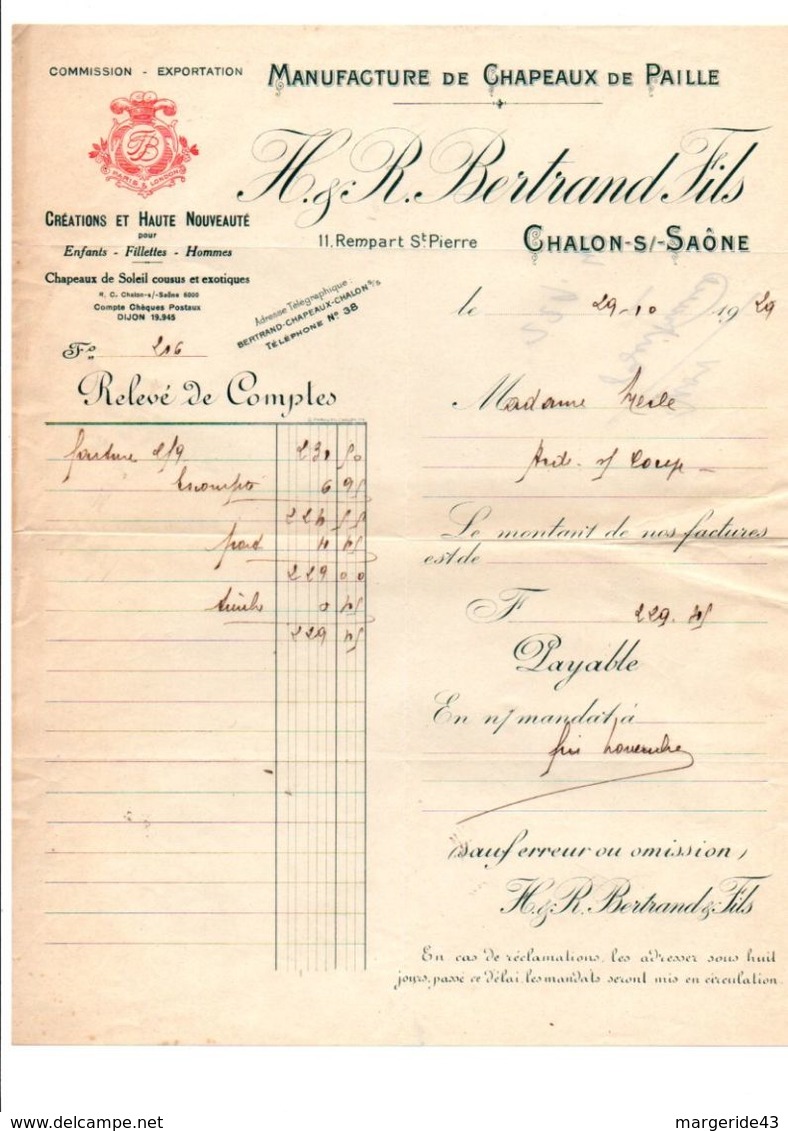 COMMISSION - EXPORTATION
MANUFACTURE DE CHAPEAUX DE PAILLE
PARIS & LONDON
H. & R. Bertrand Fils
CRÉATIONS ET HAUTE NOUVEAUTÉ
pour
Enfants - Fillettes - Hommes
11, Rempart St Pierre
CHALON-S/-SAÔNE
Chapeaux de Soleil cousus et exotiques
R. C. Chalon-s/-Saône 6000
Compte Chèques Postaux
DIJON 19.945
Adresse Télégraphique :
BERTRAND-CHAPEAUX-CHALON S/S
TÉLÉPHONE No 38
le 29-10 1929
Fo 216
Relevé de Comptes
Madame
facture 2/9 231 50
Escompte 6 95
224 55
port 4 45
229 00
timbre 0 45
229 45
Le montant de nos factures
est de
F 229.45
Payable
En n/ mandat, à
fin novembre
(sauf erreur ou omission)
H. & R. Bertrand & Fils
En cas de réclamations, les adresser sous huit
jours, passé ce délai, les mandats seront mis en circulation.
margeride43